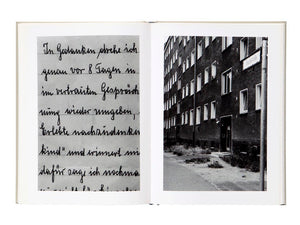 In Gedanken stehe ich
genau vor 8 Tagen in
im vertrauten Gespräch
nung wieder umgeben,
Erlebte nachzudenken
kind" und erinnert mi
dafür sage ich nochma